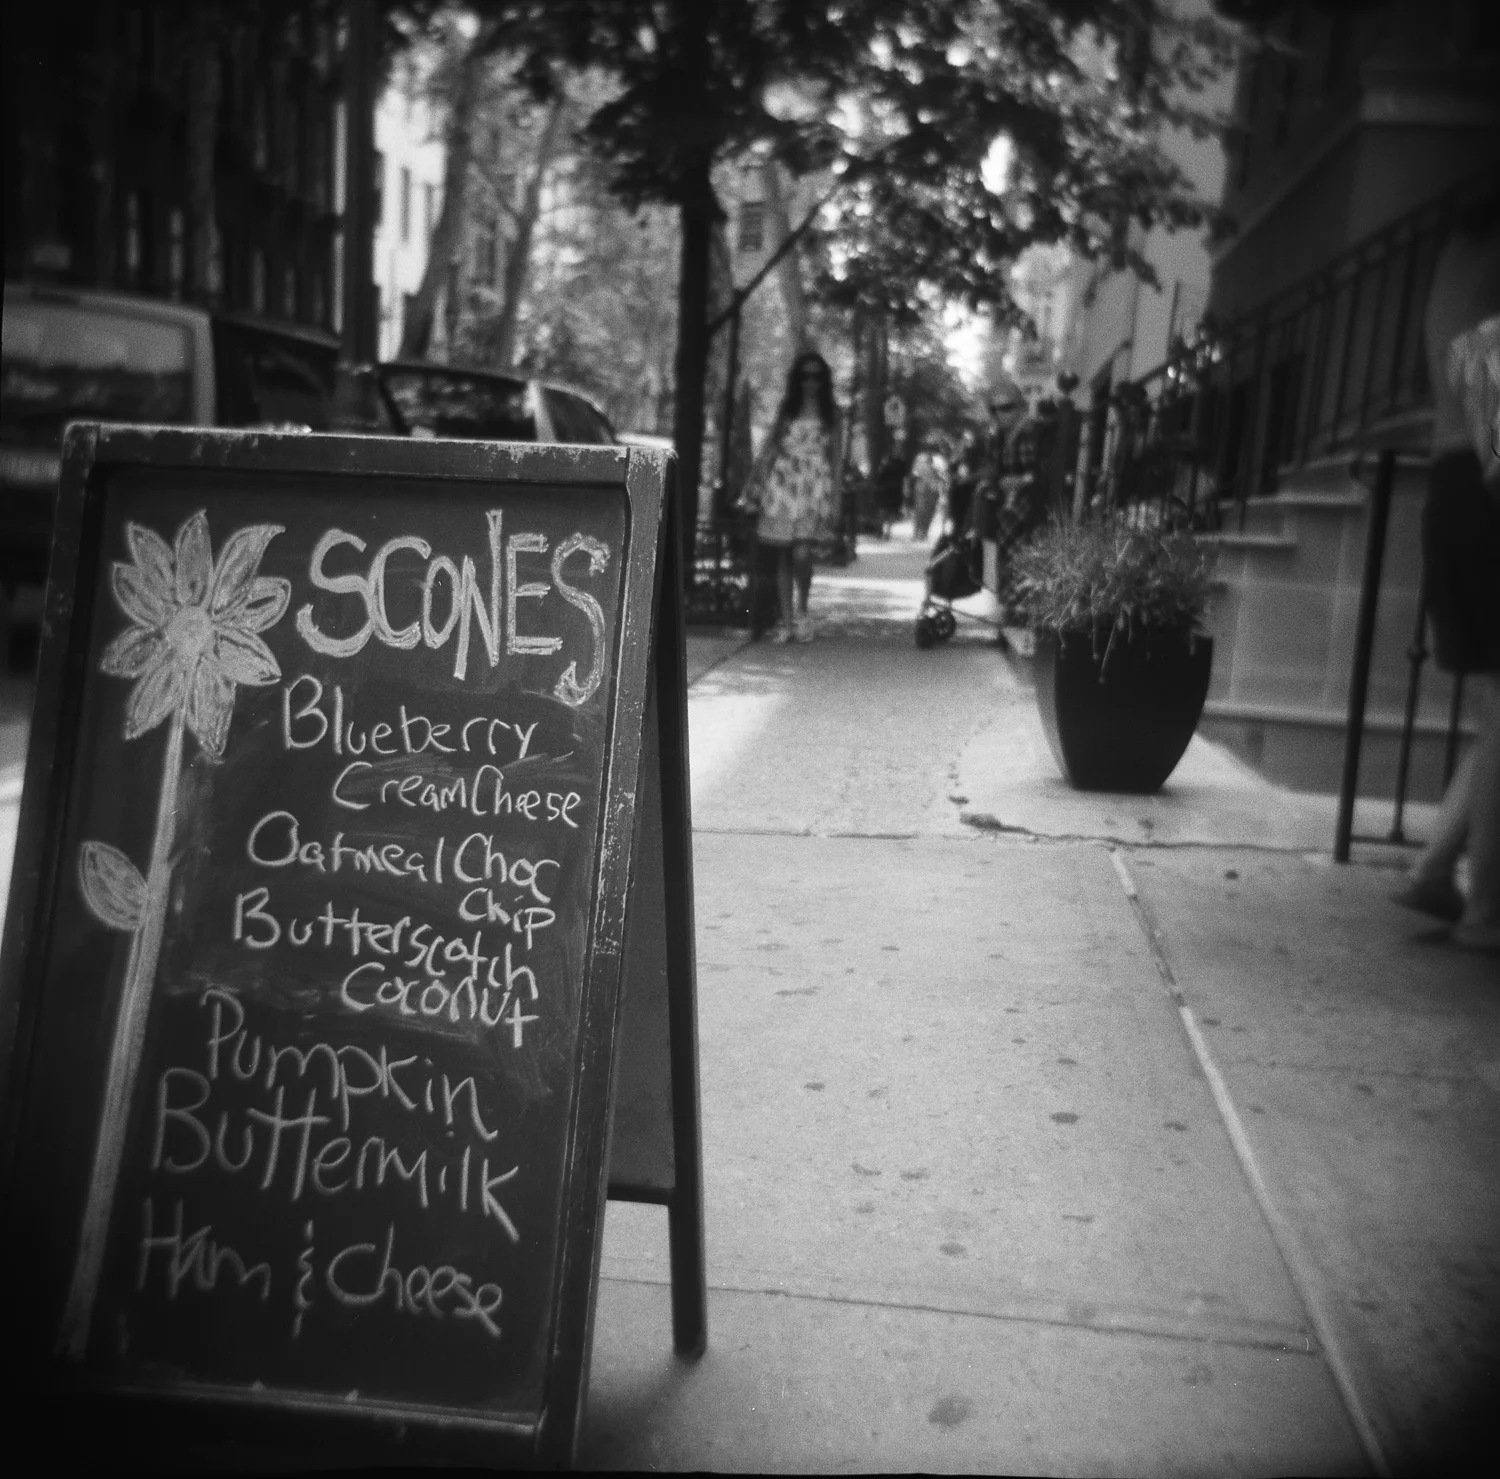 SCONES
Blueberry
CreamCheese
Oatmeal Choc
Chip
Butterscotch
Coconut
Pumpkin
Buttermilk
Ham & Cheese